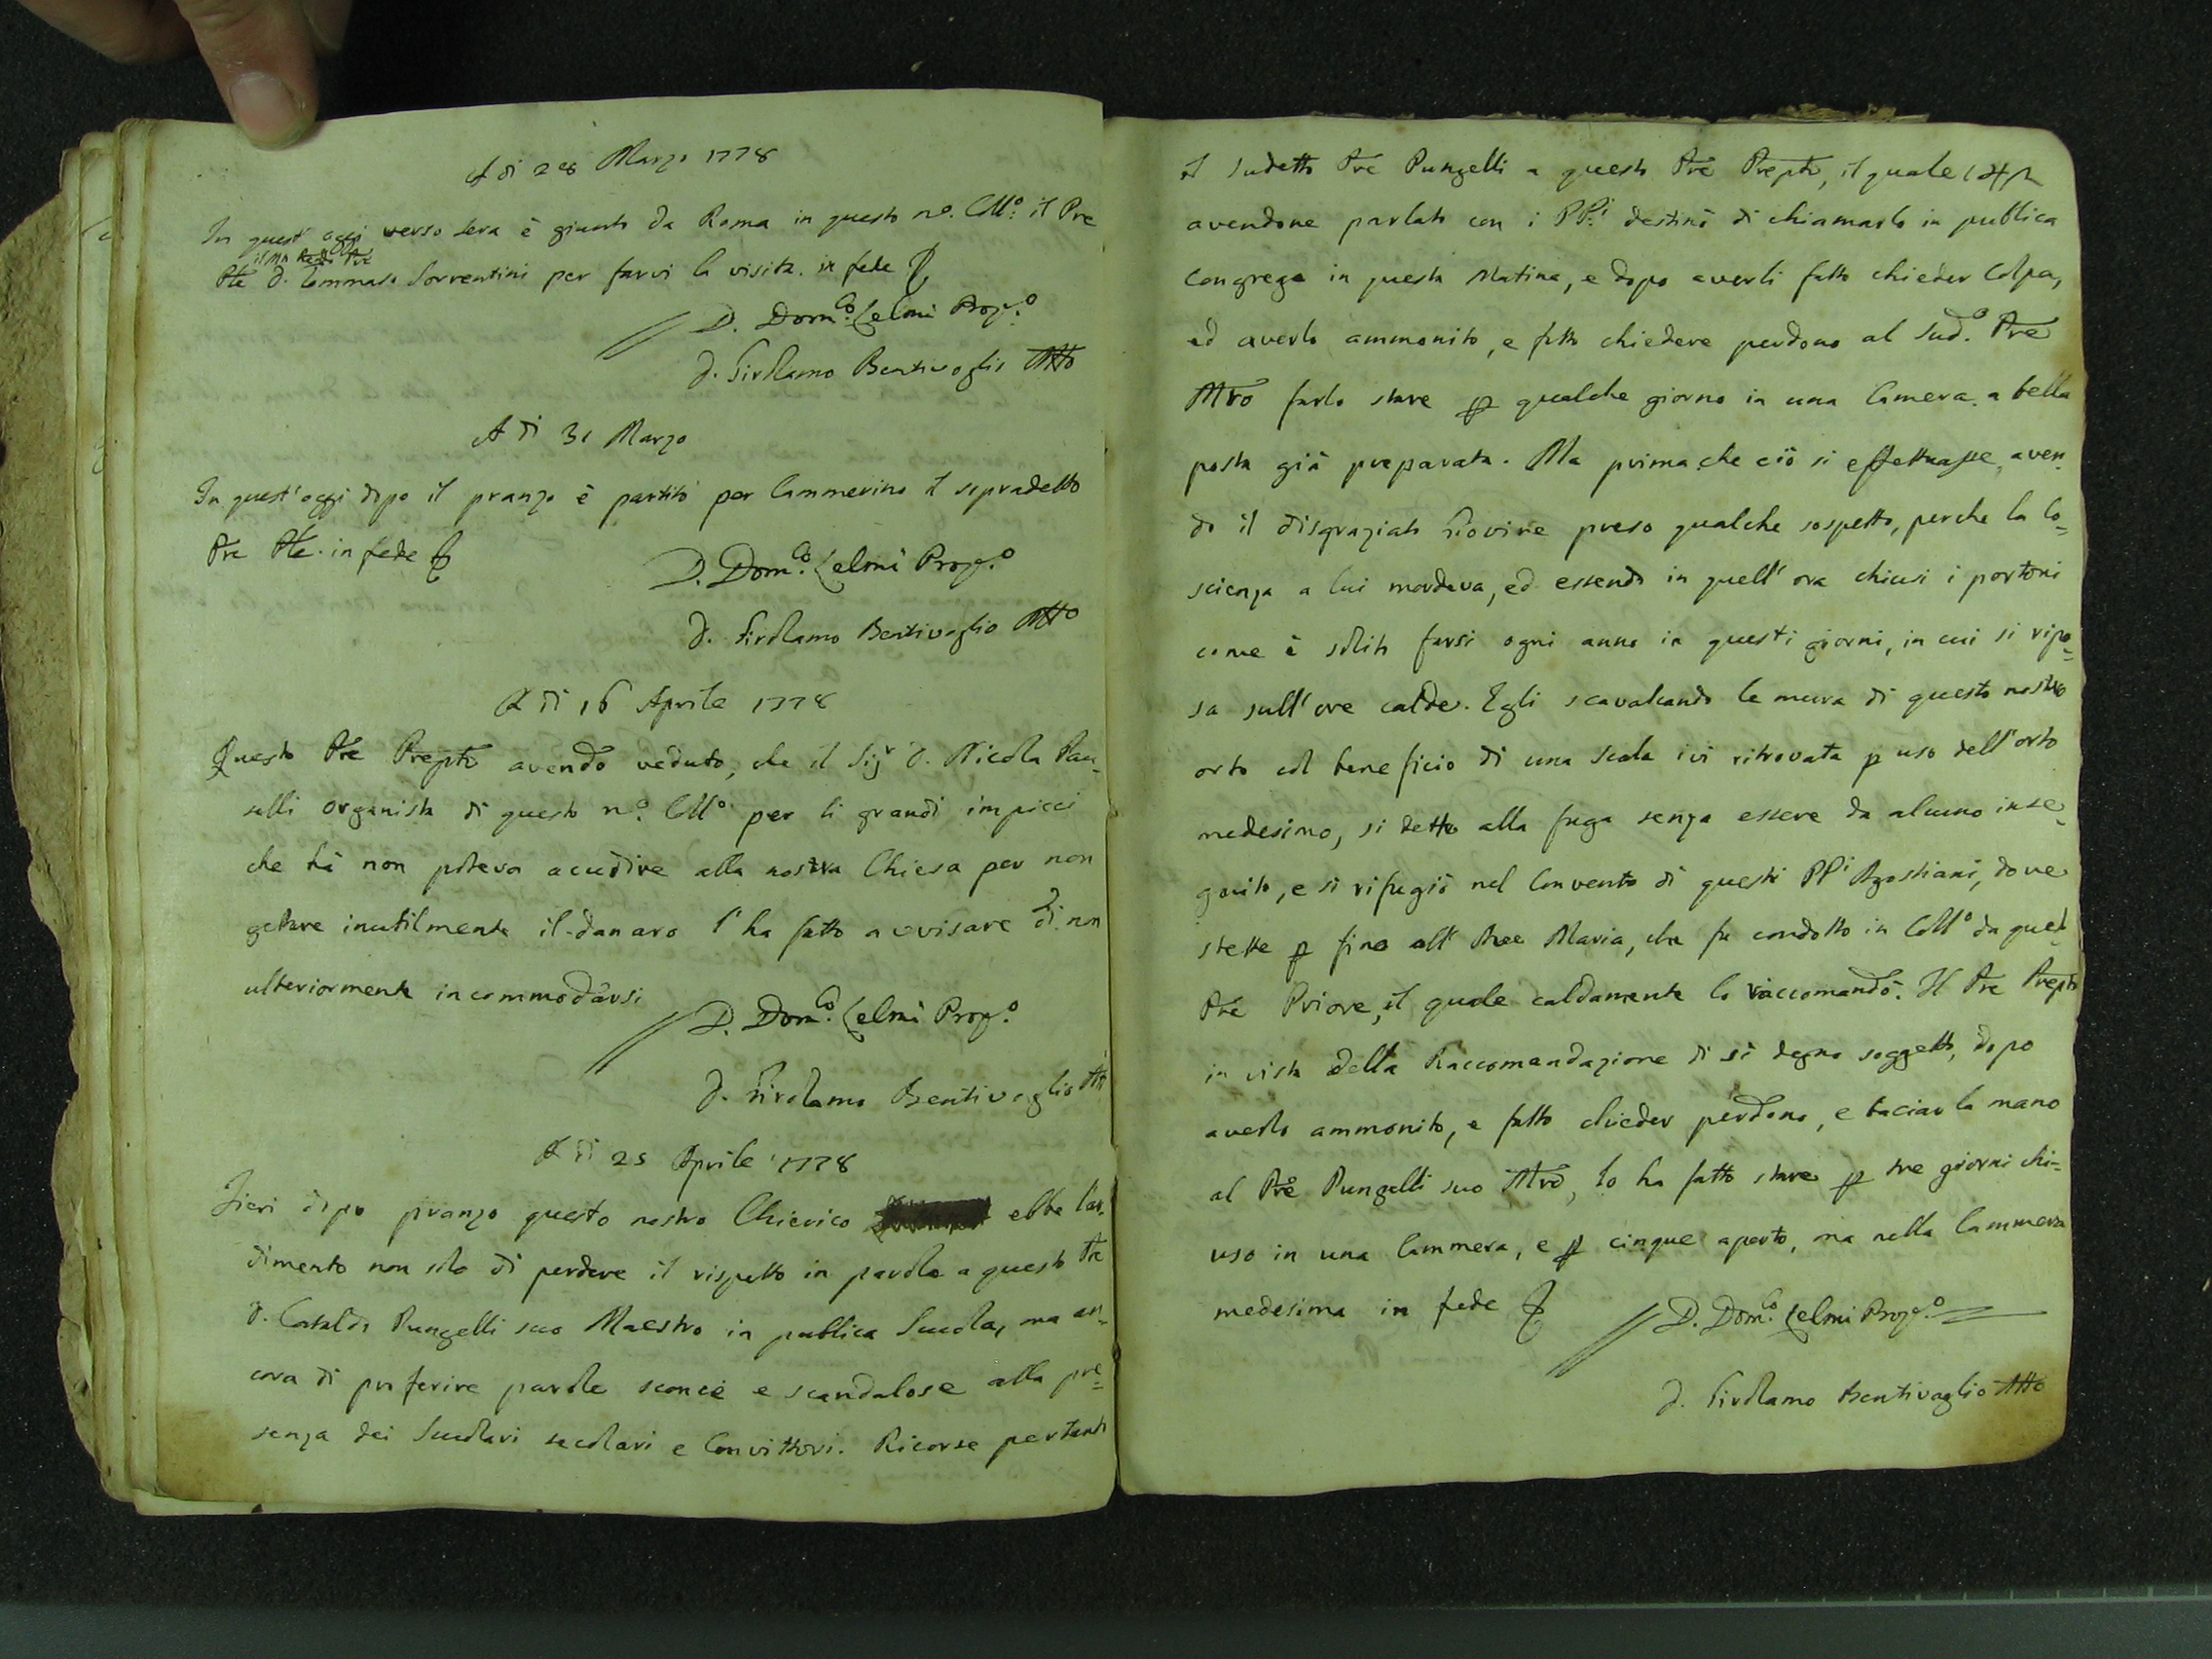 A di 28 Marzo 1778
In quest' oggi verso sera è giunto da Roma in questo no. Collo: il Pre
Ple D. Tommaso Sorrentini per farvi la visita. in fede
D. Domco. Celmi Propo.
D. Girolamo Bentivoglio Atto
A di 31 Marzo
In quest' oggi dopo il pranzo è partito per Cammerino il sopradetto
Pre Ple. in fede
D. Domco. Celmi Propo.
D. Girolamo Bentivoglio Atto
A di 16 Aprile 1778
Questo Pre Prepto avendo veduto, che il Sigr D. Nicola Pau-
selli organista di questo no. Collo per li grandi impicci
che hà non poteva accudire alla nostra Chiesa per non
gettare inutilmente il danaro l' ha fatto avvisare di non
ulteriormente incommodarsi
D. Domco. Celmi Propo.
D. Girolamo Bentivoglio Atto
A di 25 Aprile 1778
Jieri dopo pranzo questo nostro Chierico ebbe l'ar-
dimento non solo di perdere il rispetto in parole a questo Pre
D. Cataldo Pungelli suo Maestro in publica Scuola, ma an-
cora di proferire parole sconcie e scandalose alla pre=
senza dei Scuolari secolari e Convittori. Ricorse pertanto
il sudetto Pre Pungelli a questo Pre Prepto, il quale
avendone parlato con i PPi destinò di chiamarlo in publica
Congrega in questa Matina, e dopo averli fatto chieder Colpa,
ed averlo ammonito, e fatto chiedere perdono al Sudo. Pre
Mro farlo stare p qualche giorno in una Camera a bella
posta già preparata. Ma prima che ciò si effettuasse, aven
do il disgraziato Giovine preso qualche sospetto, perche la Co=
scienza a lui mordeva, ed essendo in quell' ora chiusi i portoni
come è solito farsi ogni anno in questi giorni, in cui si ripo=
sa sull' ore calde. Egli scavalcando le mura di questo nostro
orto col beneficio di una Scala ivi ritrovata p uso dell' orto
medesimo, si dette alla fuga senza essere da alcuno inse-
guito, e si rifugiò nel Convento di questi PPi Agostiani, dove
stette p fino all' Avee Maria, che fu condotto in Collo da quel
Pre Priore, il quale caldamente lo raccomandò. Il Pre Prepto
in vista della Raccomandazione di sì degno soggetto, dopo
averlo ammonito, e fatto chieder perdono, e baciar la mano
al Pre Pungelli suo Mro, lo ha fatto stare p tre giorni chi=
uso in una Cammera, e p cinque aperto, ma nella Cammera
medesima in fede
D. Domco. Celmi Propo.
D. Girolamo Bentivoglio Atto